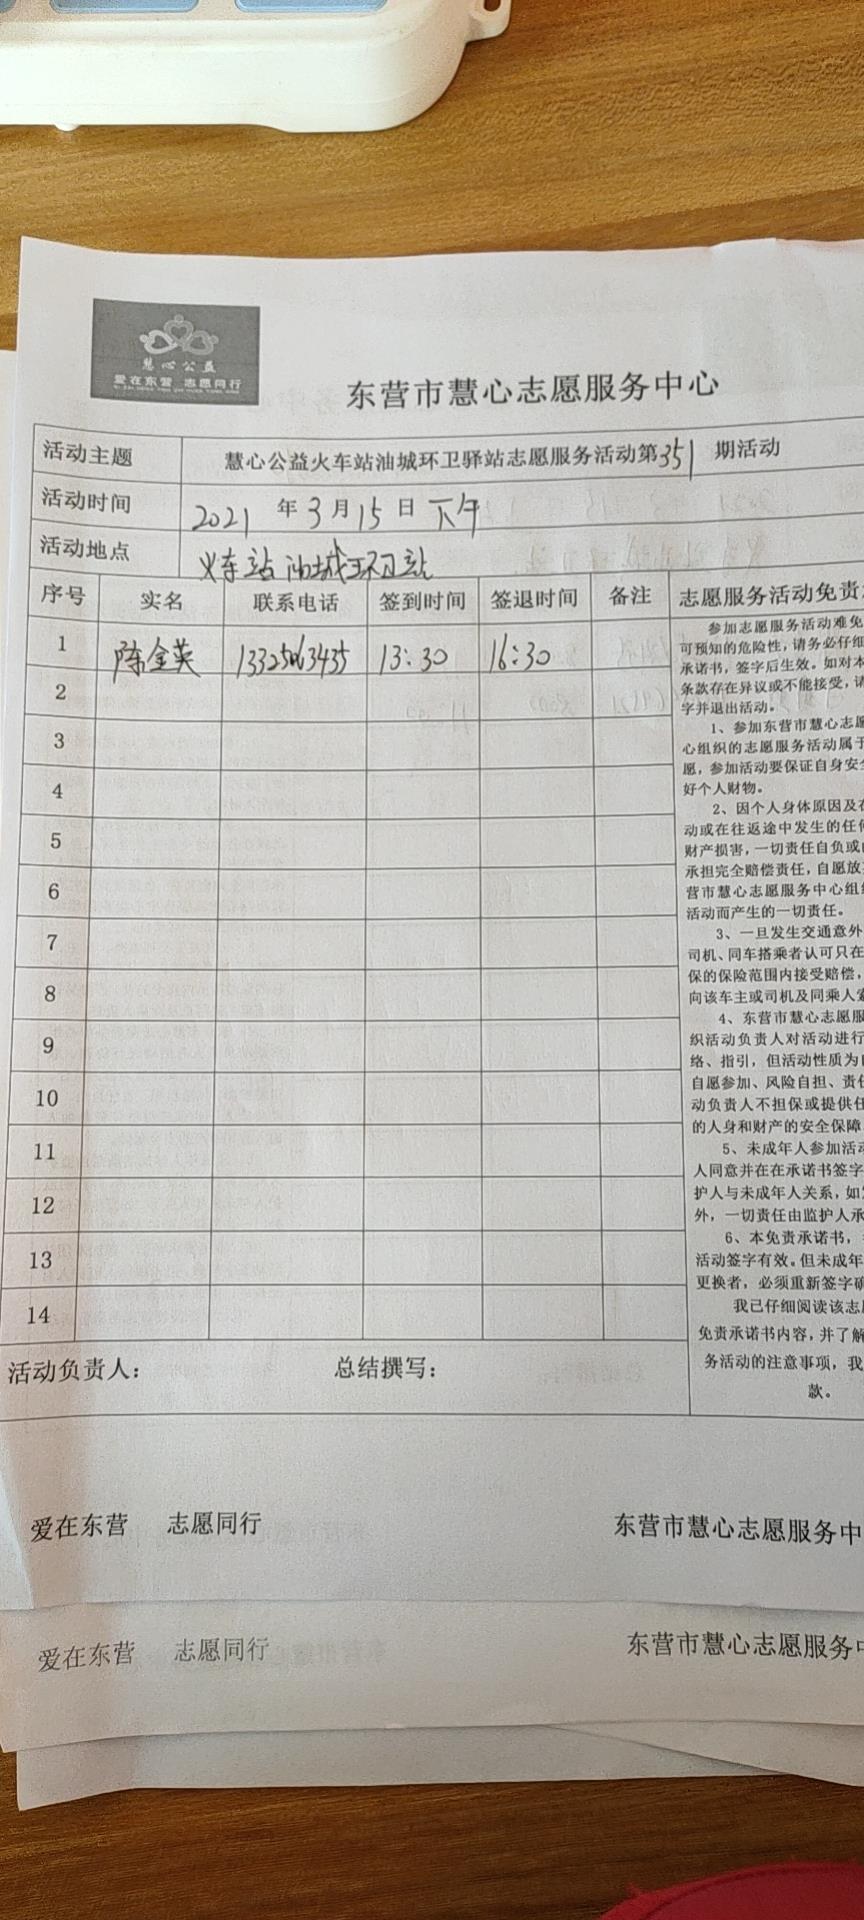 慧心公益
爱在东营 志愿同行
东营市慧心志愿服务中心
活动主题 慧心公益火车站油城环卫驿站志愿服务活动第351期活动
活动时间 2021年3月15日下午
活动地点 火车站油城环卫站
序号 实名 联系电话 签到时间 签退时间 备注 志愿服务活动免责
1 陈金英 13:30 16:30
2
3
4
5
6
7
8
9
10
11
12
13
14
参加志愿服务活动难免
可预知的危险性，请务必仔细
承诺书，签字后生效。如对本
条款存在异议或不能接受，请
字并退出活动。
1、参加东营市慧心志愿
心组织的志愿服务活动属于
愿，参加活动要保证自身安全
好个人财物。
2、因个人身体原因及在
动或在往返途中发生的任何
财产损害，一切责任自负或由
承担完全赔偿责任，自愿放
营市慧心志愿服务中心组织
活动而产生的一切责任。
3、一旦发生交通意外
司机、同车搭乘者认可只在
保的保险范围内接受赔偿，
向该车主或司机及同乘人索
4、东营市慧心志愿服
织活动负责人对活动进行
络、指引，但活动性质为自
自愿参加、风险自担、责任
动负责人不担保或提供任
的人身和财产的安全保障
5、未成年人参加活动
人同意并在在承诺书签字
护人与未成年人关系，如
外，一切责任由监护人承
6、本免责承诺书，
活动签字有效。但未成年
更换者，必须重新签字确
我已仔细阅读该志愿
免责承诺书内容，并了解
务活动的注意事项，我
款。
活动负责人： 总结撰写：
爱在东营 志愿同行 东营市慧心志愿服务中
爱在东营 志愿同行 东营市慧心志愿服务中